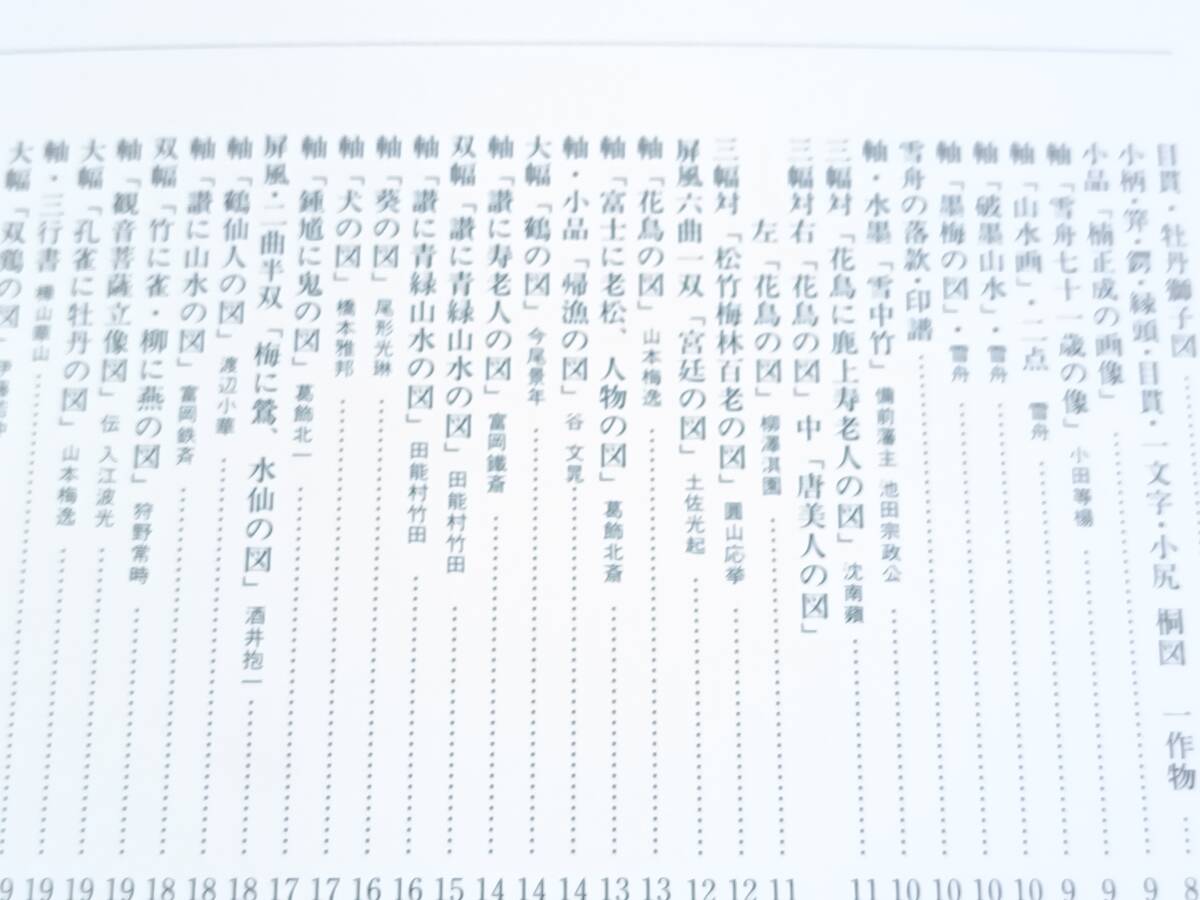 目貫・牡丹獅子図 8
小柄・笄・鍔・縁頭・目貫・一文字・小尻 桐図 一作物 9
小品「楠正成の画像」 9
軸「雪舟七十一歳の像」 小田等楊 9
軸「山水画」・二点 雪舟 10
軸「破墨山水」・雪舟 10
軸「墨梅の図」・雪舟 10
雪舟の落款・印譜 10
軸・水墨「雪中竹」 備前藩主 池田宗政公 11
三幅対「花鳥に鹿上寿老人の図」 沈南蘋
三幅対右「花鳥の図」中「唐美人の図」
左「花鳥の図」 柳澤淇園 11
三幅対「松竹梅林百老の図」 圓山応挙 12
屏風六曲一双「宮廷の図」 土佐光起 12
軸「花鳥の図」 山本梅逸 13
軸「富士に老松、人物の図」 葛飾北斎 13
軸・小品「帰漁の図」 谷 文晁 14
大幅「鶴の図」 今尾景年 14
軸「讃に寿老人の図」 富岡鐵斎 14
双幅「讃に青緑山水の図」 田能村竹田 15
軸「讃に青緑山水の図」 田能村竹田 16
軸「葵の図」 尾形光琳 16
軸「犬の図」 橋本雅邦 17
軸「鍾馗に鬼の図」 葛飾北一 17
屏風・二曲半双「梅に鶯、水仙の図」 酒井抱一 18
軸「鶴仙人の図」 渡辺小華 18
軸「讃に山水の図」 富岡鉄斎 18
双幅「竹に雀・柳に燕の図」 狩野常時 19
軸「観音菩薩立像図」 伝 入江波光 19
大幅「孔雀に牡丹の図」 山本梅逸 19
軸・三行書 華山 19
大幅「双鶏の図」